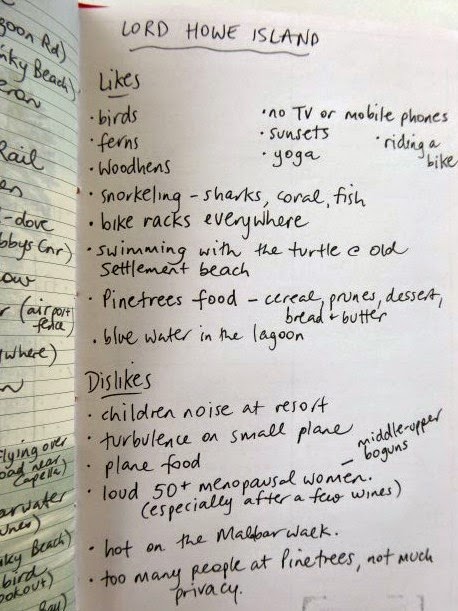 goon Rd)
nky Beach)
eran
Rail
es
l-dove
bbys Cnr)
ow
r (airport
fence)
where)
n
flying over
oad near
Capella)
arwater
unes)
nky Beach)
bird
ookout)
Bay)
LORD HOWE ISLAND
Likes
• birds
• ferns
• Woodhens
• no TV or mobile phones
• sunsets
• yoga
• riding a
bike
• snorkeling – sharks, coral, fish
• bike racks everywhere
• swimming with the turtle @ old
settlement beach
• Pinetrees food – cereal, prunes, dessert,
bread + butter
• blue water in the lagoon
Dislikes
• children noise at resort
• turbulence on small plane
• plane food
• loud 50+ menopausal women.
– middle-upper
boguns
(especially after a few wines)
• hot on the Malabar walk.
• too many people at Pinetrees, not much
privacy.